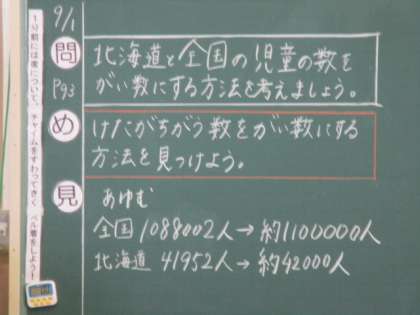 9/1
問
北海道と全国の児童の数を
がい数にする方法を考えましょう。
P93
め
けたがちがう数をがい数にする
方法を見つけよう。
見
あゆむ
全国 1088002人→約1100000人
北海道 41952人→約42000人
1分前には席について、チャイムをすわってきく ベル着をしよう!